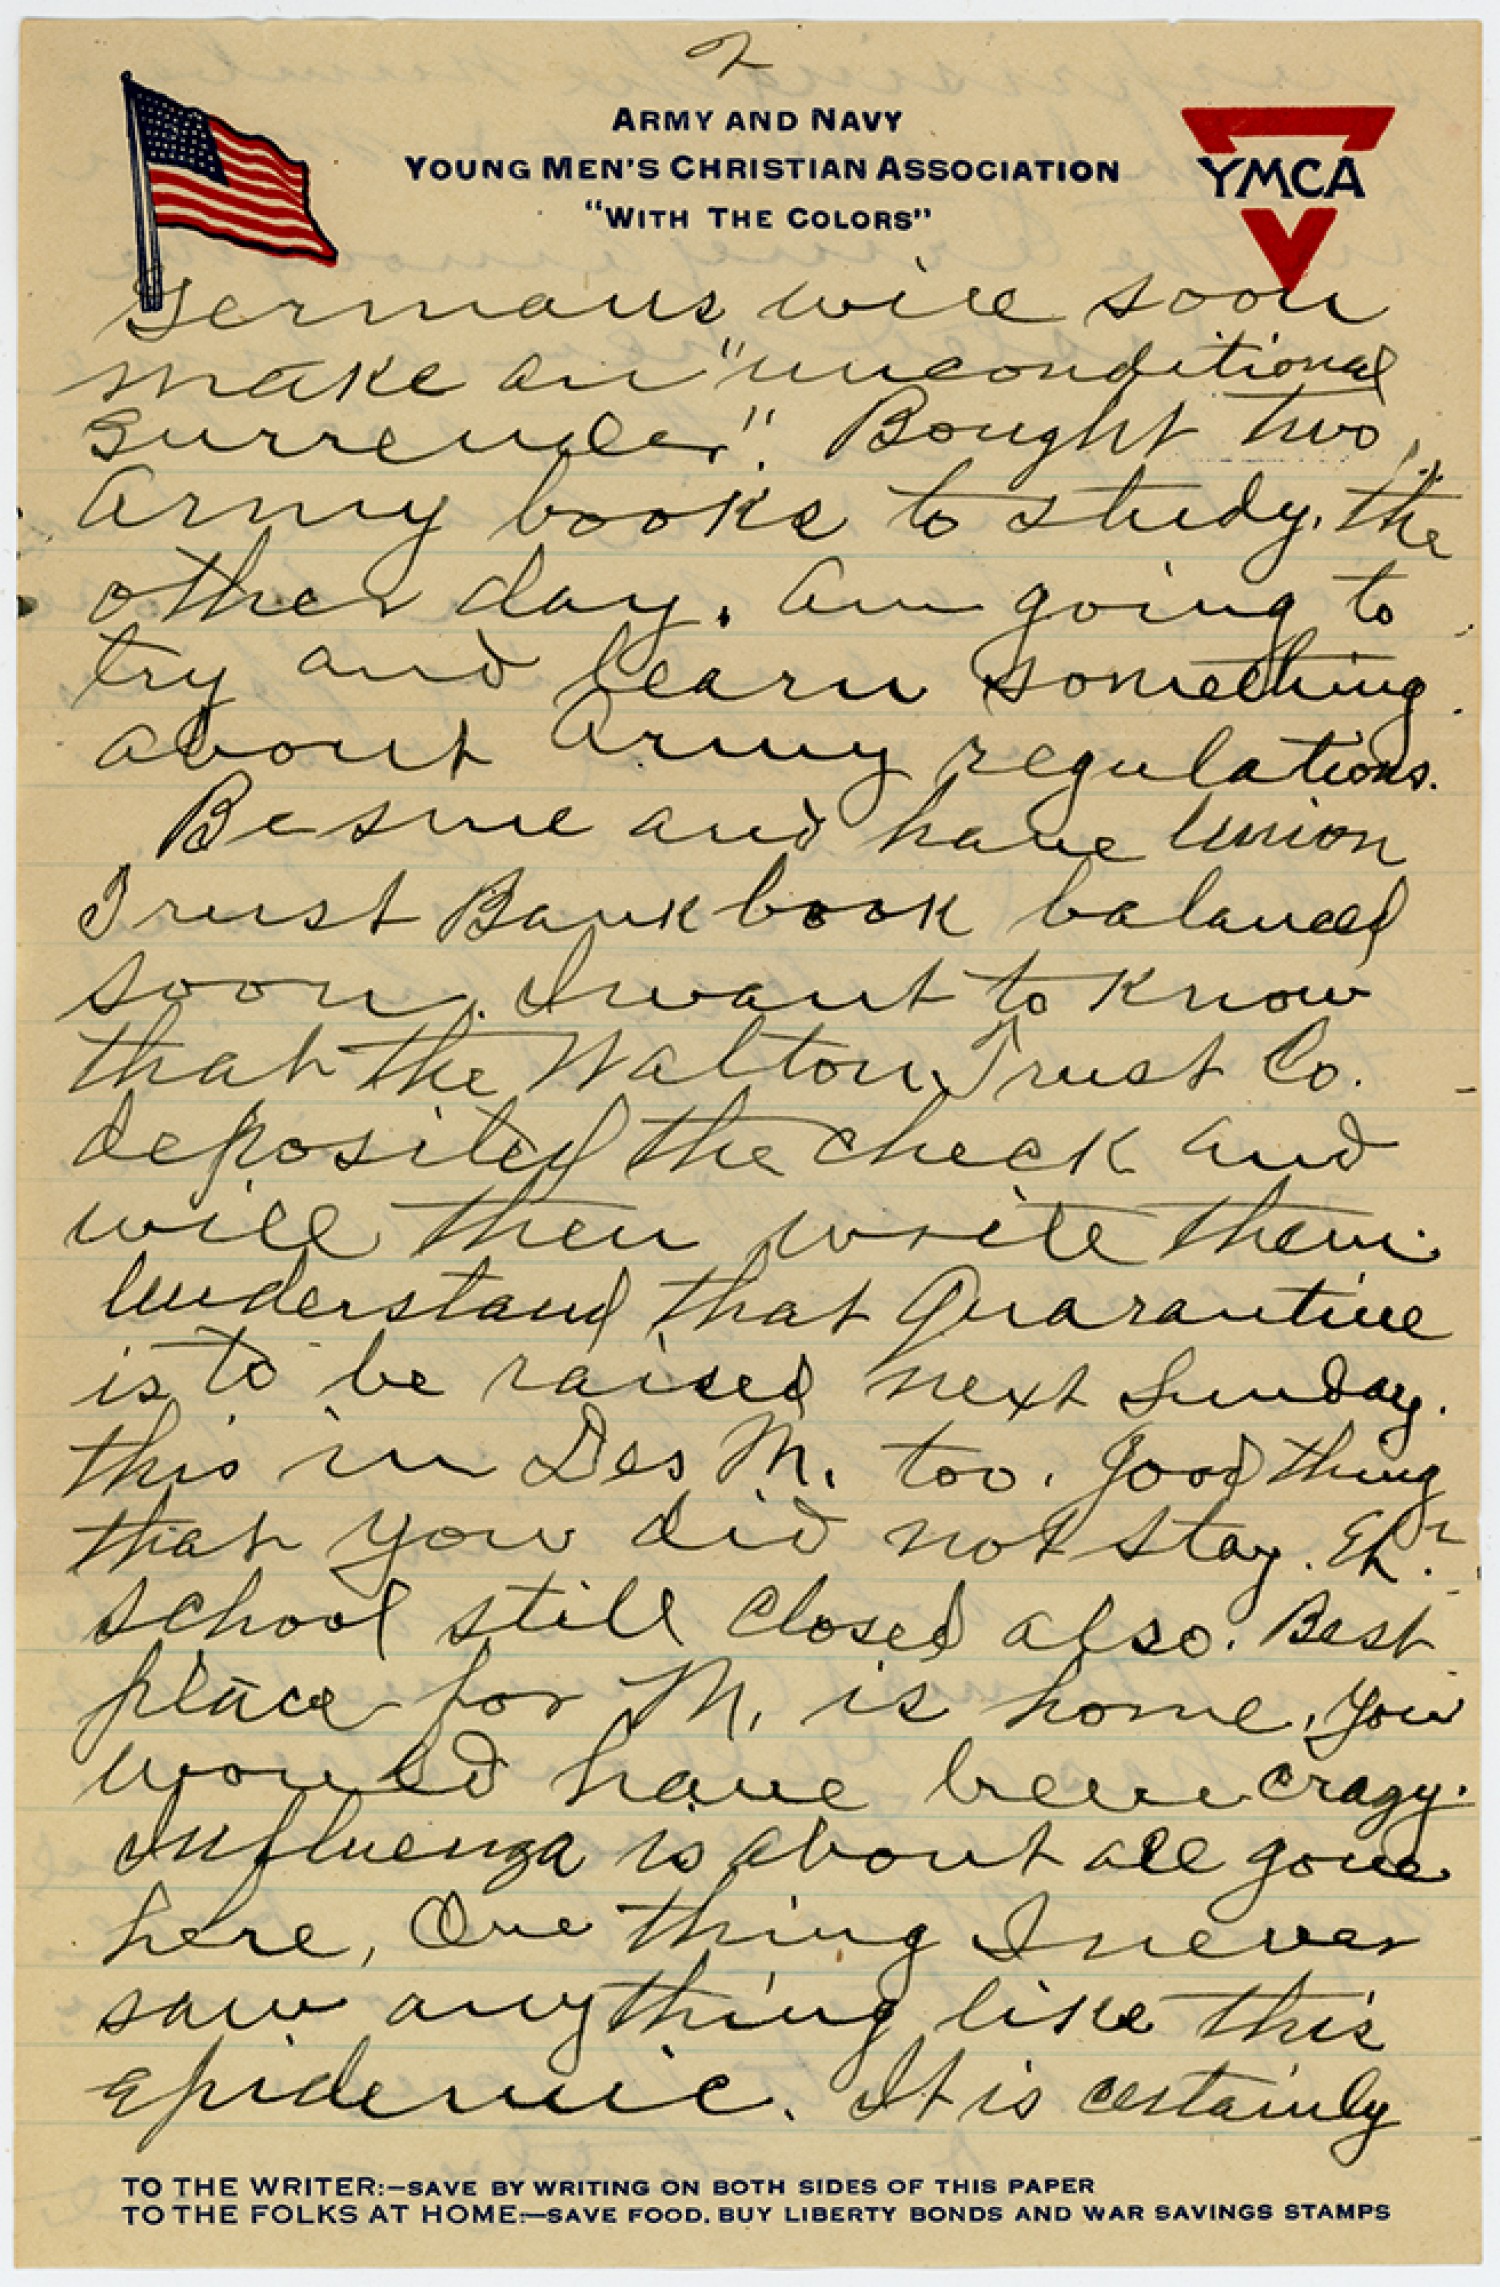 2
ARMY AND NAVY
YOUNG MEN'S CHRISTIAN ASSOCIATION
"WITH THE COLORS"
YMCA
Germans will soon
make an "unconditional
surrender". Bought two
Army books to study, the
other day. Am going to
try and learn something
about Army regulations.
Be sure and have Union
Trust Bank book balanced
soon. I want to know
that the Walton Trust Co.
deposited the check and
will then write them.
Understand that Quarantine
is to be raised next Sunday.
this in Des M. too. Good thing
that you did not stay. Eh.
school still closed also. Best
place for M. is home, you
would have been crazy.
Influenza is about all gone
here, One thing I never
saw anything like this
epidemic. It is certainly
TO THE WRITER:—SAVE BY WRITING ON BOTH SIDES OF THIS PAPER
TO THE FOLKS AT HOME:—SAVE FOOD, BUY LIBERTY BONDS AND WAR SAVINGS STAMPS